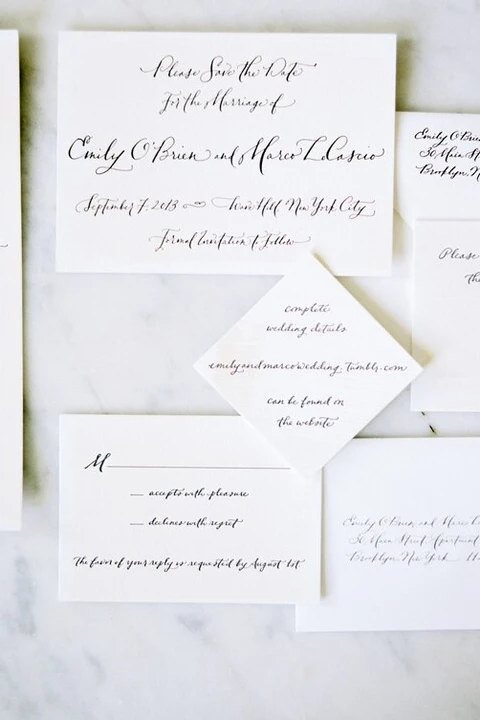 Please Save the Date
For the Marriage of
Emily O'Brien and Marco LoCascio
September 7, 2013 Wave Hill New York City
Formal Invitation to Follow
Emily O'Brien
30 Main St
Brooklyn, N
Please
the
complete
wedding details
emilyandmarcowedding.tumblr.com
can be found on
the website
M
accepts with pleasure
declines with regret
The favor of your reply is requested by August 1st
Emily O'Brien and Marco L
30 Main Street Apartment
Brooklyn New York 11